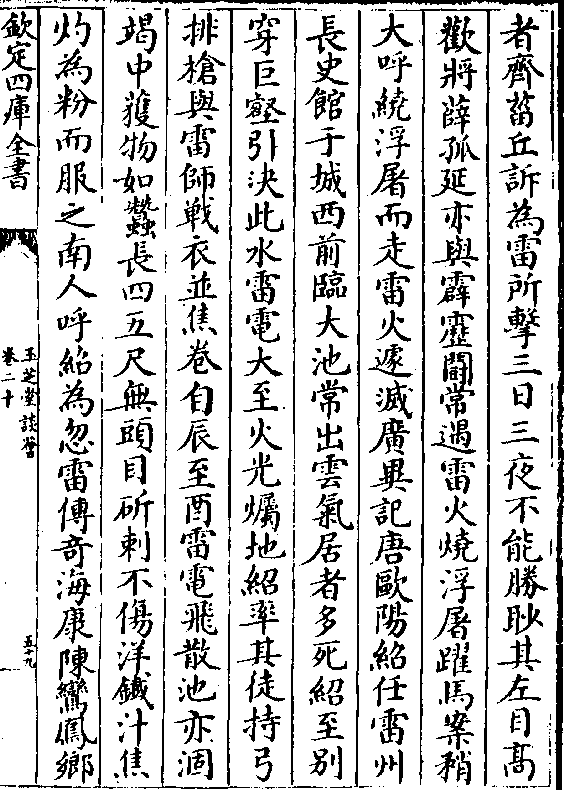 者齊菑丘訴為雷所擊三日三夜不能勝眇其左目髙
歡將薛孤延亦與霹靂鬬常遇雷火燒浮屠躍馬案矟
大呼繞浮屠而走雷火遽滅廣異記唐歐陽紹任雷州
長史館于城西前臨大池常出雲氣居者多死紹至别
穿巨壑引決此水雷電大至火光爥地紹率其徒持弓
排槍與雷師戰衣並焦卷自辰至酉雷電飛散池亦涸
竭中獲物如蠶長四五尺無頭目斫刺不傷洋鐡汁焦
灼為粉而服之南人呼紹為忽雷傳竒海康陳鸞鳳鄉
欽定四庫全書
玉芝堂談薈
卷二十
五十九